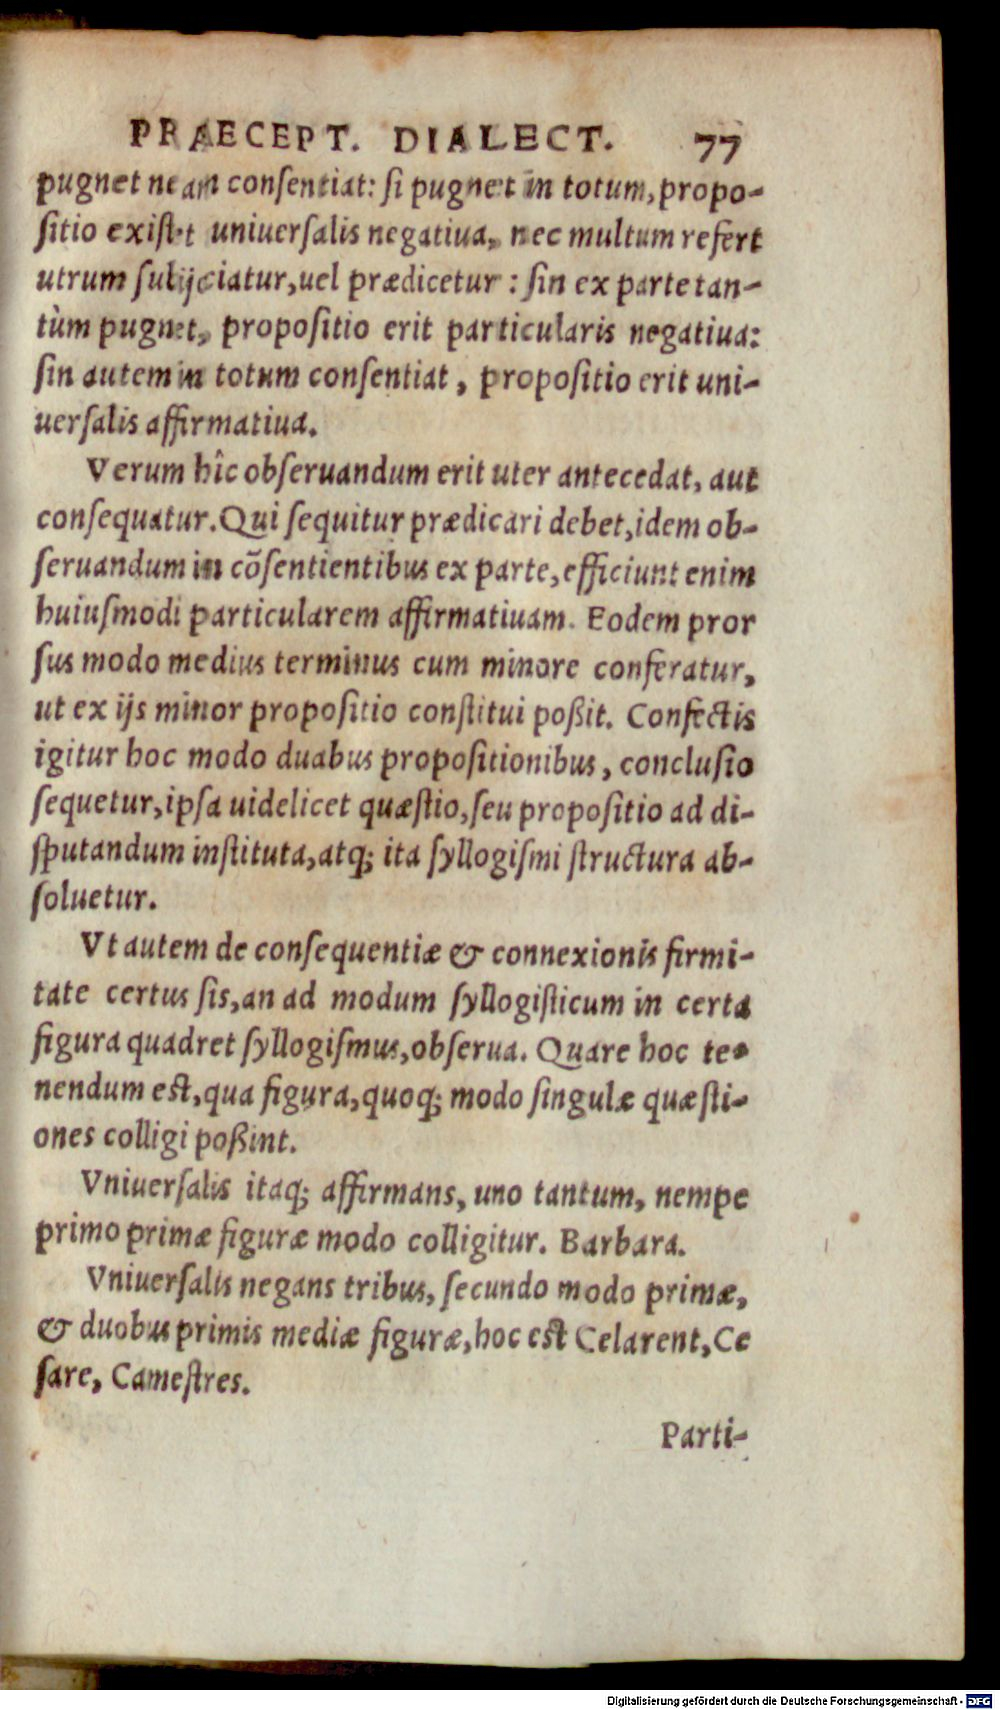 PRAECEPT. DIALECT. 77
pugnet ne an consentiat: si pugnet in totum, propo-
sitio existet uniuersalis negatiua, nec multum refert
utrum subijciatur, uel prædicetur: sin ex parte tan-
tùm pugnet, propositio erit particularis negatiua:
sin autem in totum consentiat, propositio erit uni-
uersalis affirmatiua.
Verum hîc obseruandum erit uter antecedat, aut
consequatur. Qui sequitur prædicari debet, idem ob-
seruandum in cõsentientibus ex parte, efficiunt enim
huiusmodi particularem affirmatiuam. Eodem pror
sus modo medius terminus cum minore conferatur,
ut ex ijs minor propositio constitui poßit. Confectis
igitur hoc modo duabus propositionibus, conclusio
sequetur, ipsa uidelicet quæstio, seu propositio ad di-
sputandum instituta, atq; ita syllogismi structura ab-
soluetur.
Vt autem de consequentiæ & connexionis firmi-
tate certus sis, an ad modum syllogisticum in certa
figura quadret syllogismus, obserua. Quare hoc te-
nendum est, qua figura, quoq; modo singulæ quæsti-
ones colligi poßint.
Vniuersalis itaq; affirmans, uno tantum, nempe
primo primæ figuræ modo colligitur. Barbara.
Vniuersalis negans tribus, secundo modo primæ,
& duobus primis mediæ figuræ, hoc est Celarent, Ce
sare, Camestres.
Parti-
Digitalisierung gefördert durch die Deutsche Forschungsgemeinschaft - DFG